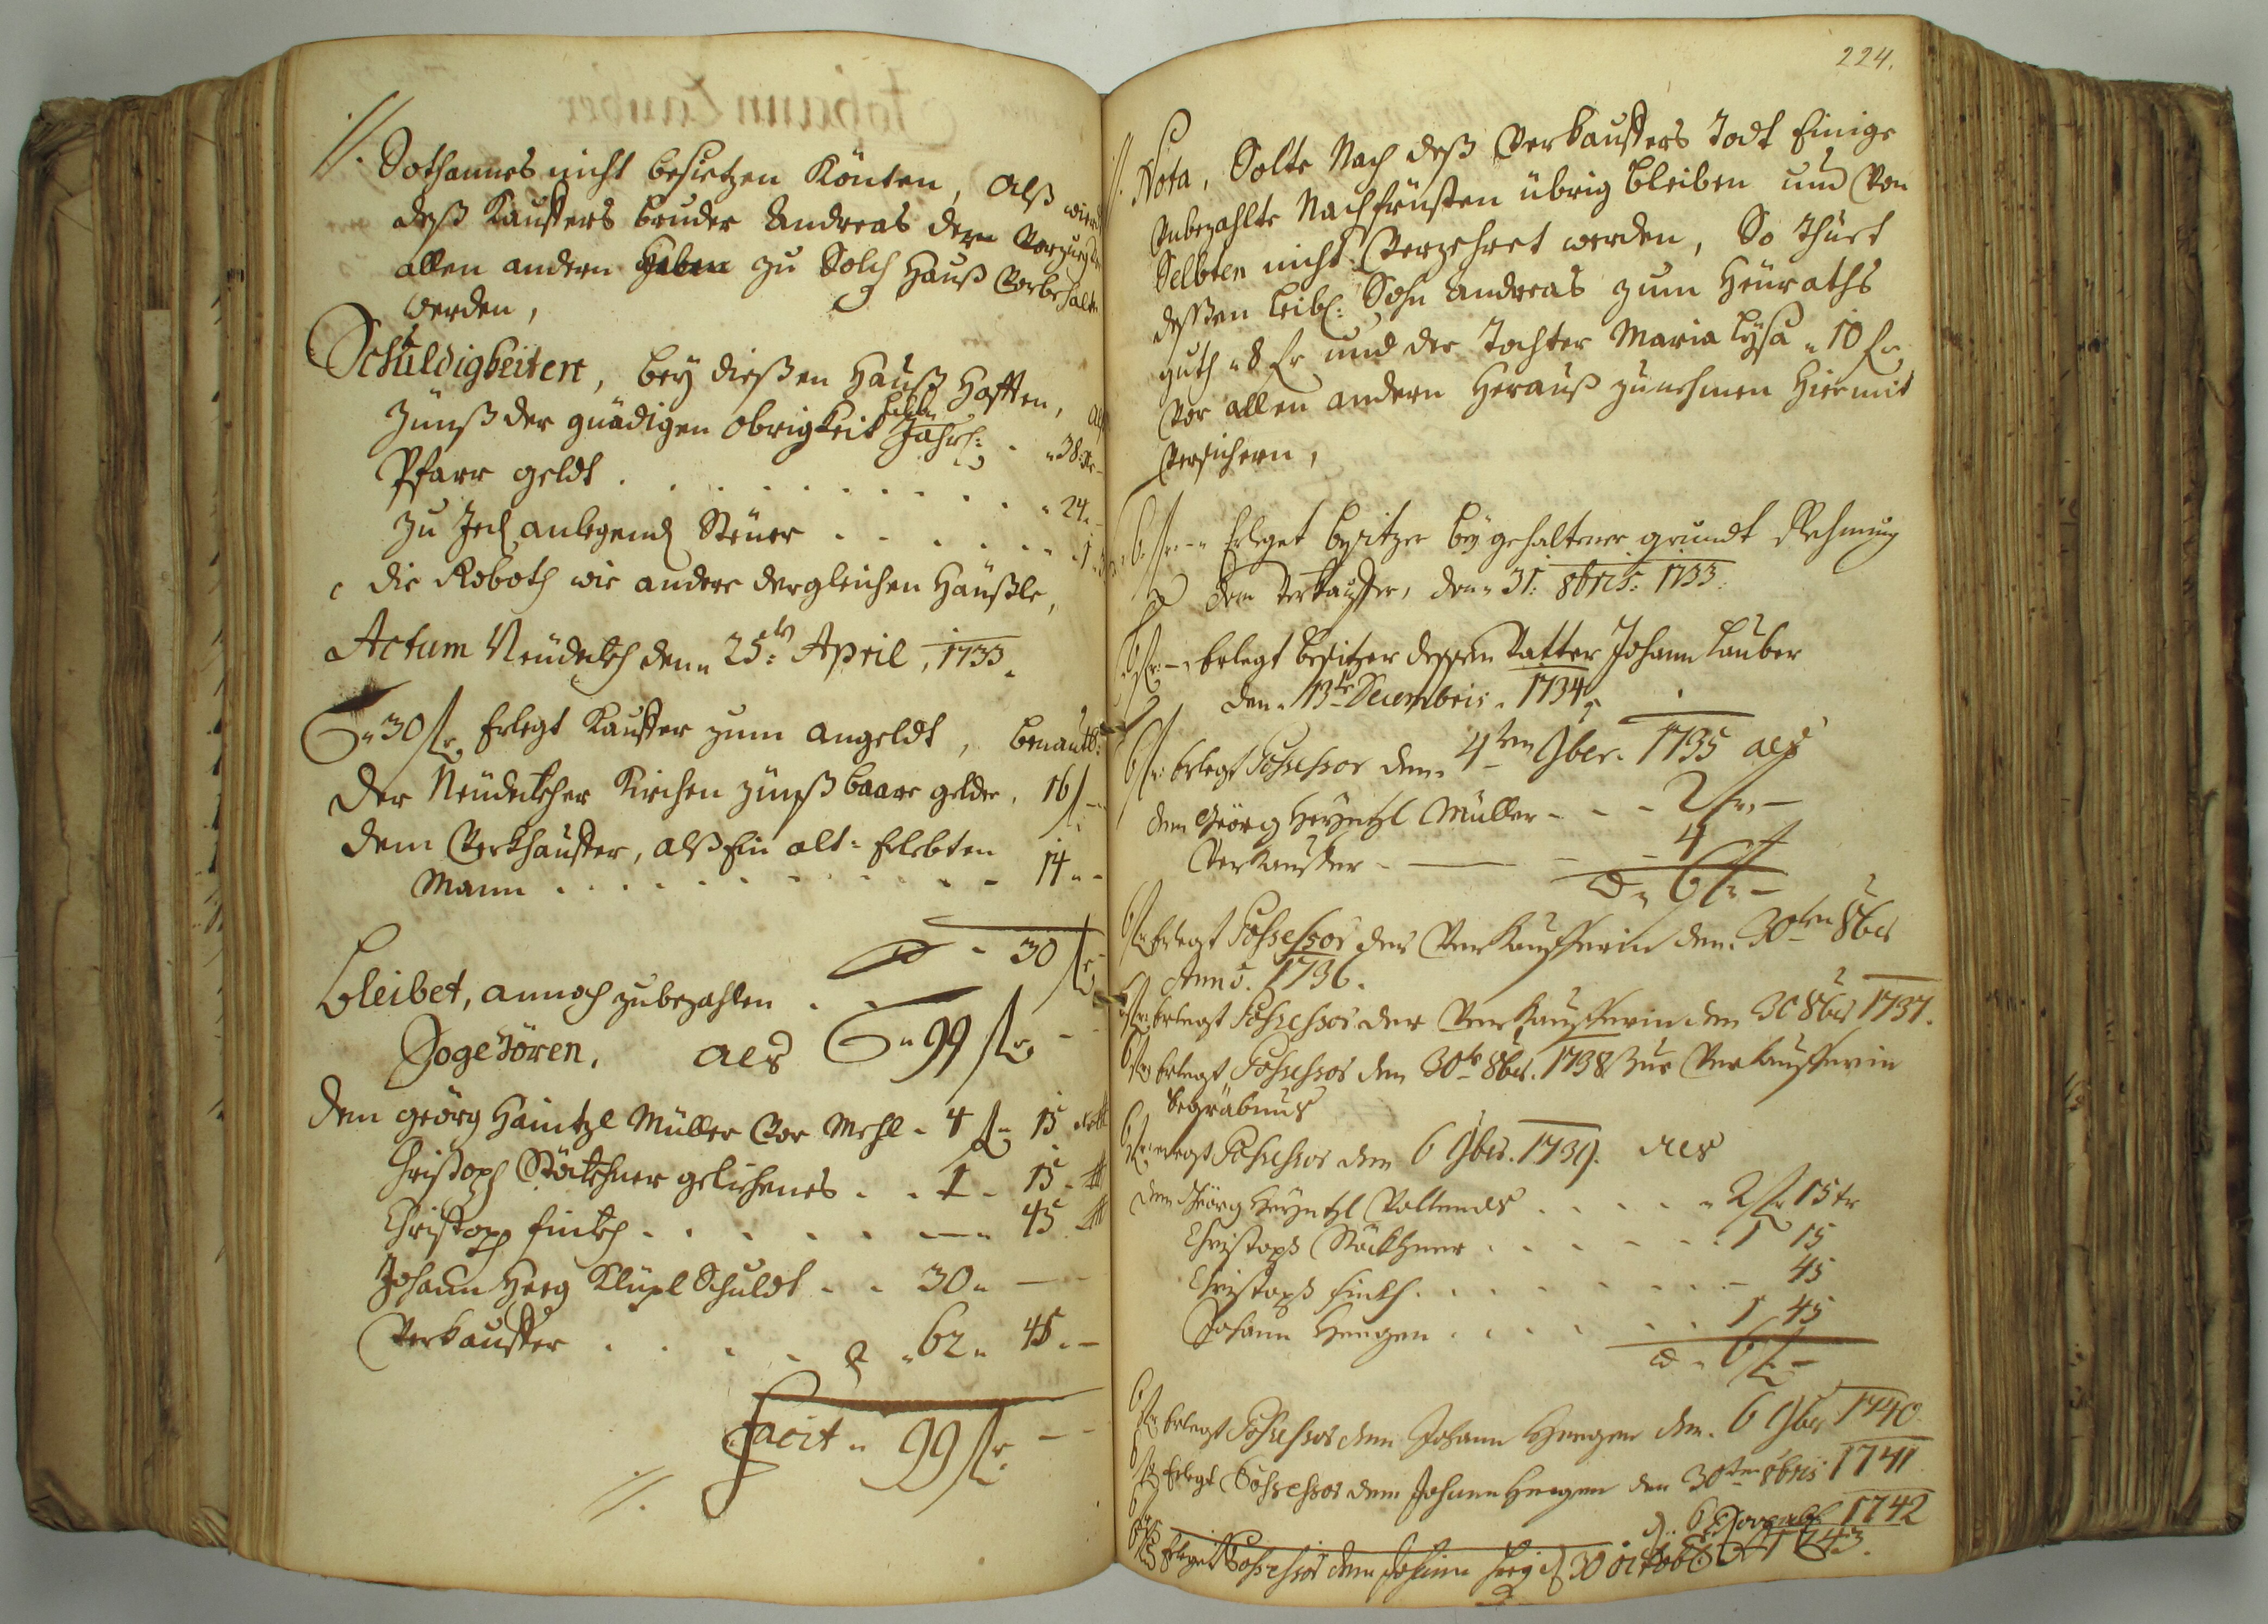 //. Sothannes nicht besietzen Könten, Alß wierd
deß Kauffers bruder Andreas dem Vorzueg vor
allen andern haben zu Solch Hauß Vorbehalten
werden,
Schuldigkeiten, bey dießen Hauß Hafften, alß
Zünß der gnädigen Obrigkeit Jährl: - " 38. xr
Pfarr geldt . . . . . . . . " 24. -
Zu Jed anlegend Steuer . . . . . . 1.
die Roboth wie andere dergleichen Häußle,
Actum Neüdekh den " 25: ten April, 1733.
" 30 fl Erlegt Kauffer zum angeldt, benantl:
Der Neüdekher Kirchen zünß baare gelder, 16 fl -
dem Verkhauffer, alß Ein alt-Erlebten
Mann . . . . . . . . . . 14 " -
- 30 fl
bleibet, annoch zubezahlen . .
Sogehören, als " 99 fl - -
dem georg Haintzl Müller Vor Mehl - 4 fl " 15
Christoph Stökhner geliehenes . . 1 - 15 -
Christoph Finkh . . . . . . — " 45
Johann Herg Klüpl Schuldt . . 30 " —
Verkauffer . . . . " 62 " 45 . -
Facit " 99 fl - -
//.
224.
//. Nota, Solte Nach deß Verkauffers Todt Einige
Unbezahlte Nachfrüsten übrig bleiben und Von
Selbten nicht Verzehret werden, So thuet
deßßen leibl: Sohn Andreas zum Heüraths
guth " 8 fl und der Tochter Maria Lysa " 10 fl
Vor allen andern Herauß zunehmen Hiermit
Versichern,
6 fl - " Erleget besitzer bey gehaltener grundt Rechnung
dem Verkauffer, den " 31: 8bris: 1733.
6 fl - Erlegt besitzer dessen Vatter Johann Lauber
den " 13te Decembris " 1734
6 fl Erlegt Possessor den " 4ten 9ber. 1735 als
dem Georg Heyntzl Müller - - - 2 fl -
Verkauffer - — - - 4
" 6 fl -
6 fl Erlegt Possessor der Verkaufferin den 30ten 8ber
Anno. 1736.
6 fl Erlegt Possessor der Verkaufferin den 30 8ber 1737.
6 fl Erlegt Possessor den 30te 8ber. 1738 Zur Verkaufferin
begräbnus
6 fl Erlegt Possessor den 6 9ber. 1739. als
dem Georg Heyntzl Vollends . . . . . " 2 fl 15 kr
Christoph Stöckhner . . . . . . . 1 15
Christoph Finkh . . . . . . . . - 45
Johann Hergen . . . . . . . 1 45
" 6 fl -
6 fl Erlegt Possessor dem Johann Hergen den . 6 9ber 1740
6 fl Erlegt Possessor dem Johann Hergen den 30ten 8bris 1741
6 fl d. 6 Novembr 1742
6 fl Erleget Possessor dem Johann Herg d 30 octobr 1743.